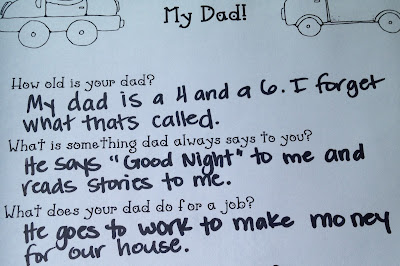 My Dad!
How old is your dad?
My dad is a 4 and a 6. I forget
what thats called.
What is something dad always says to you?
He says "Good Night" to me and
reads stories to me.
What does your dad do for a job?
He goes to work to make money
for our house.